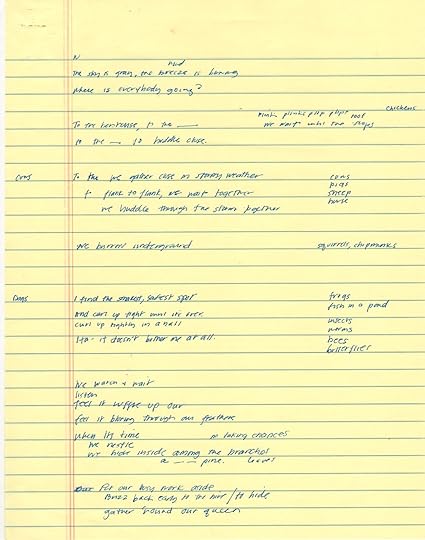 N
wind
The sky is gray, the breeze is
Where is everybody going?
chickens
plink plinks plip plops roof
To the henhouse, to the ___ we wait until the stops
to the ___ to huddle close.
Cows To the we gather close in stormy weather cows
pigs
+ flank to flank, we wait together sheep
horse
we huddle through the storm together
We burrow underground squirrels, chipmunks
I find the smallest, safest spot frogs
And curl up tight until it's over. fish in a pond
curl up tightly in a ball insects
worms
Ha - it doesn't bother me at all. bees
butterflies
We watch + wait
listen
feel it up our
feel it blowing through our feathers
when it's time no taking chances
We nestle
We hide inside among the branches
a ___ pine. leaves
For our busy work aside
Buzz back early to the hive / to hide
gather 'round our queen